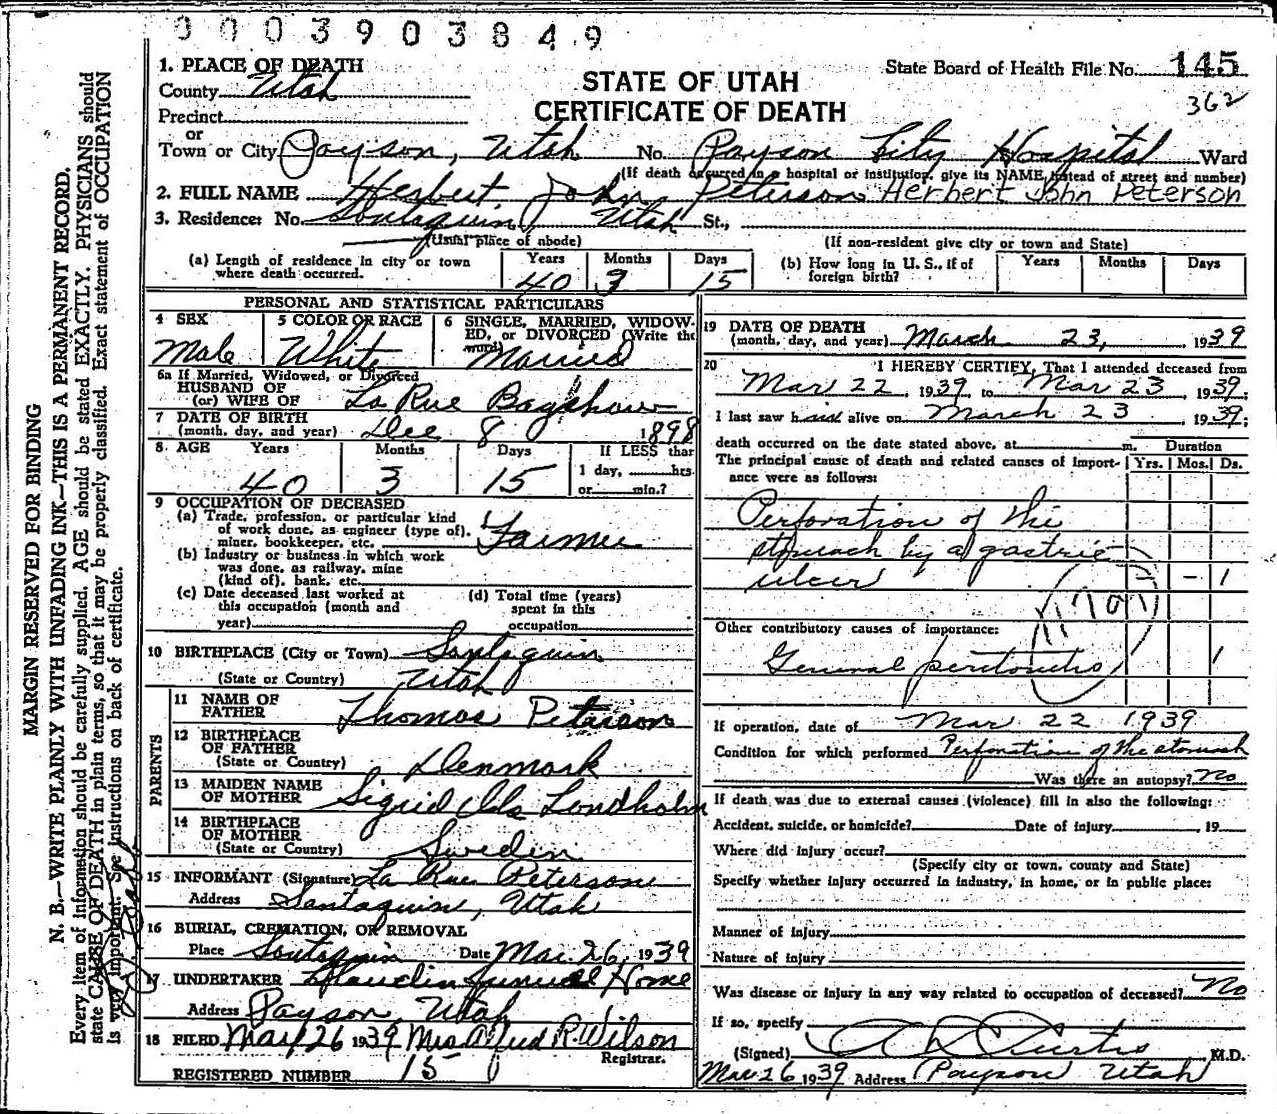 0003903849
1. PLACE OF DEATH
County Utah
Precinct
or
Town or City Payson, Utah No. Payson City Hospital Ward
(If death occurred in a hospital or institution, give its NAME instead of street and number)
STATE OF UTAH
CERTIFICATE OF DEATH
State Board of Health File No. 145
362
2. FULL NAME Herbert John Peterson Herbert John Peterson
3. Residence: No. Santaquin, Utah St.,
(Usual place of abode)
(If non-resident give city or town and State)
(a) Length of residence in city or town where death occurred. Years 40 Months 3 Days 15
(b) How long in U. S., if of foreign birth? Years Months Days
PERSONAL AND STATISTICAL PARTICULARS
4 SEX Male
5 COLOR OR RACE White
6 SINGLE, MARRIED, WIDOWED, or DIVORCED (Write the word) Married
6a If Married, Widowed, or Divorced
HUSBAND OF
(or) WIFE OF La Rue Bagshaw
7 DATE OF BIRTH
(month, day, and year) Dec 8 1898
8 AGE Years 40 Months 3 Days 15
If LESS than
1 day, hrs.
or min.?
9 OCCUPATION OF DECEASED
(a) Trade, profession, or particular kind
of work done, as engineer (type of),
miner, bookkeeper, etc. Farmer
(b) Industry or business in which work
was done, as railway, mine
(kind of), bank, etc.
(c) Date deceased last worked at
this occupation (month and
year)
(d) Total time (years)
spent in this
occupation
10 BIRTHPLACE (City or Town) Santaquin
(State or Country) Utah
PARENTS
11 NAME OF
FATHER Thomas Peterson
12 BIRTHPLACE
OF FATHER
(State or Country) Denmark
13 MAIDEN NAME
OF MOTHER Sigrid Londholm
14 BIRTHPLACE
OF MOTHER
(State or Country) Sweden
15 INFORMANT (Signature) La Rue Peterson
Address Santaquin, Utah
16 BURIAL, CREMATION, OR REMOVAL
Place Santaquin Date Mar. 26, 1939
17 UNDERTAKER Funeral Home
Address Payson, Utah
18 FILED Mar 26 1939 Mrs Alfred R. Wilson
Registrar.
REGISTERED NUMBER 15
19 DATE OF DEATH
(month, day, and year) March 23, 1939
20 I HEREBY CERTIFY, That I attended deceased from
Mar 22, 1939, to Mar 23, 1939;
I last saw him alive on March 23, 1939;
death occurred on the date stated above, at m.
Duration
The principal cause of death and related causes of importance were as follows: Yrs. Mos. Ds.
Perforation of the
stomach by a gastric
ulcer - - 1
117a
Other contributory causes of importance:
General peritonitis 1
If operation, date of Mar 22 1939
Condition for which performed Perforation of the stomach
Was there an autopsy? No
If death was due to external causes (violence) fill in also the following:
Accident, suicide, or homicide? Date of injury , 19
Where did injury occur?
(Specify city or town, county and State)
Specify whether injury occurred in industry, in home, or in public place:
Manner of injury
Nature of injury
Was disease or injury in any way related to occupation of deceased? No
If so, specify
(Signed) A L Curtis M.D.
Mar 26 1939 Address Payson Utah
MARGIN RESERVED FOR BINDING
N. B.—WRITE PLAINLY WITH UNFADING INK—THIS IS A PERMANENT RECORD.
Every item of information should be carefully supplied. AGE should be stated EXACTLY. PHYSICIANS should
state CAUSE OF DEATH in plain terms, so that it may be properly classified. Exact statement of OCCUPATION
is very important. See instructions on back of certificate.